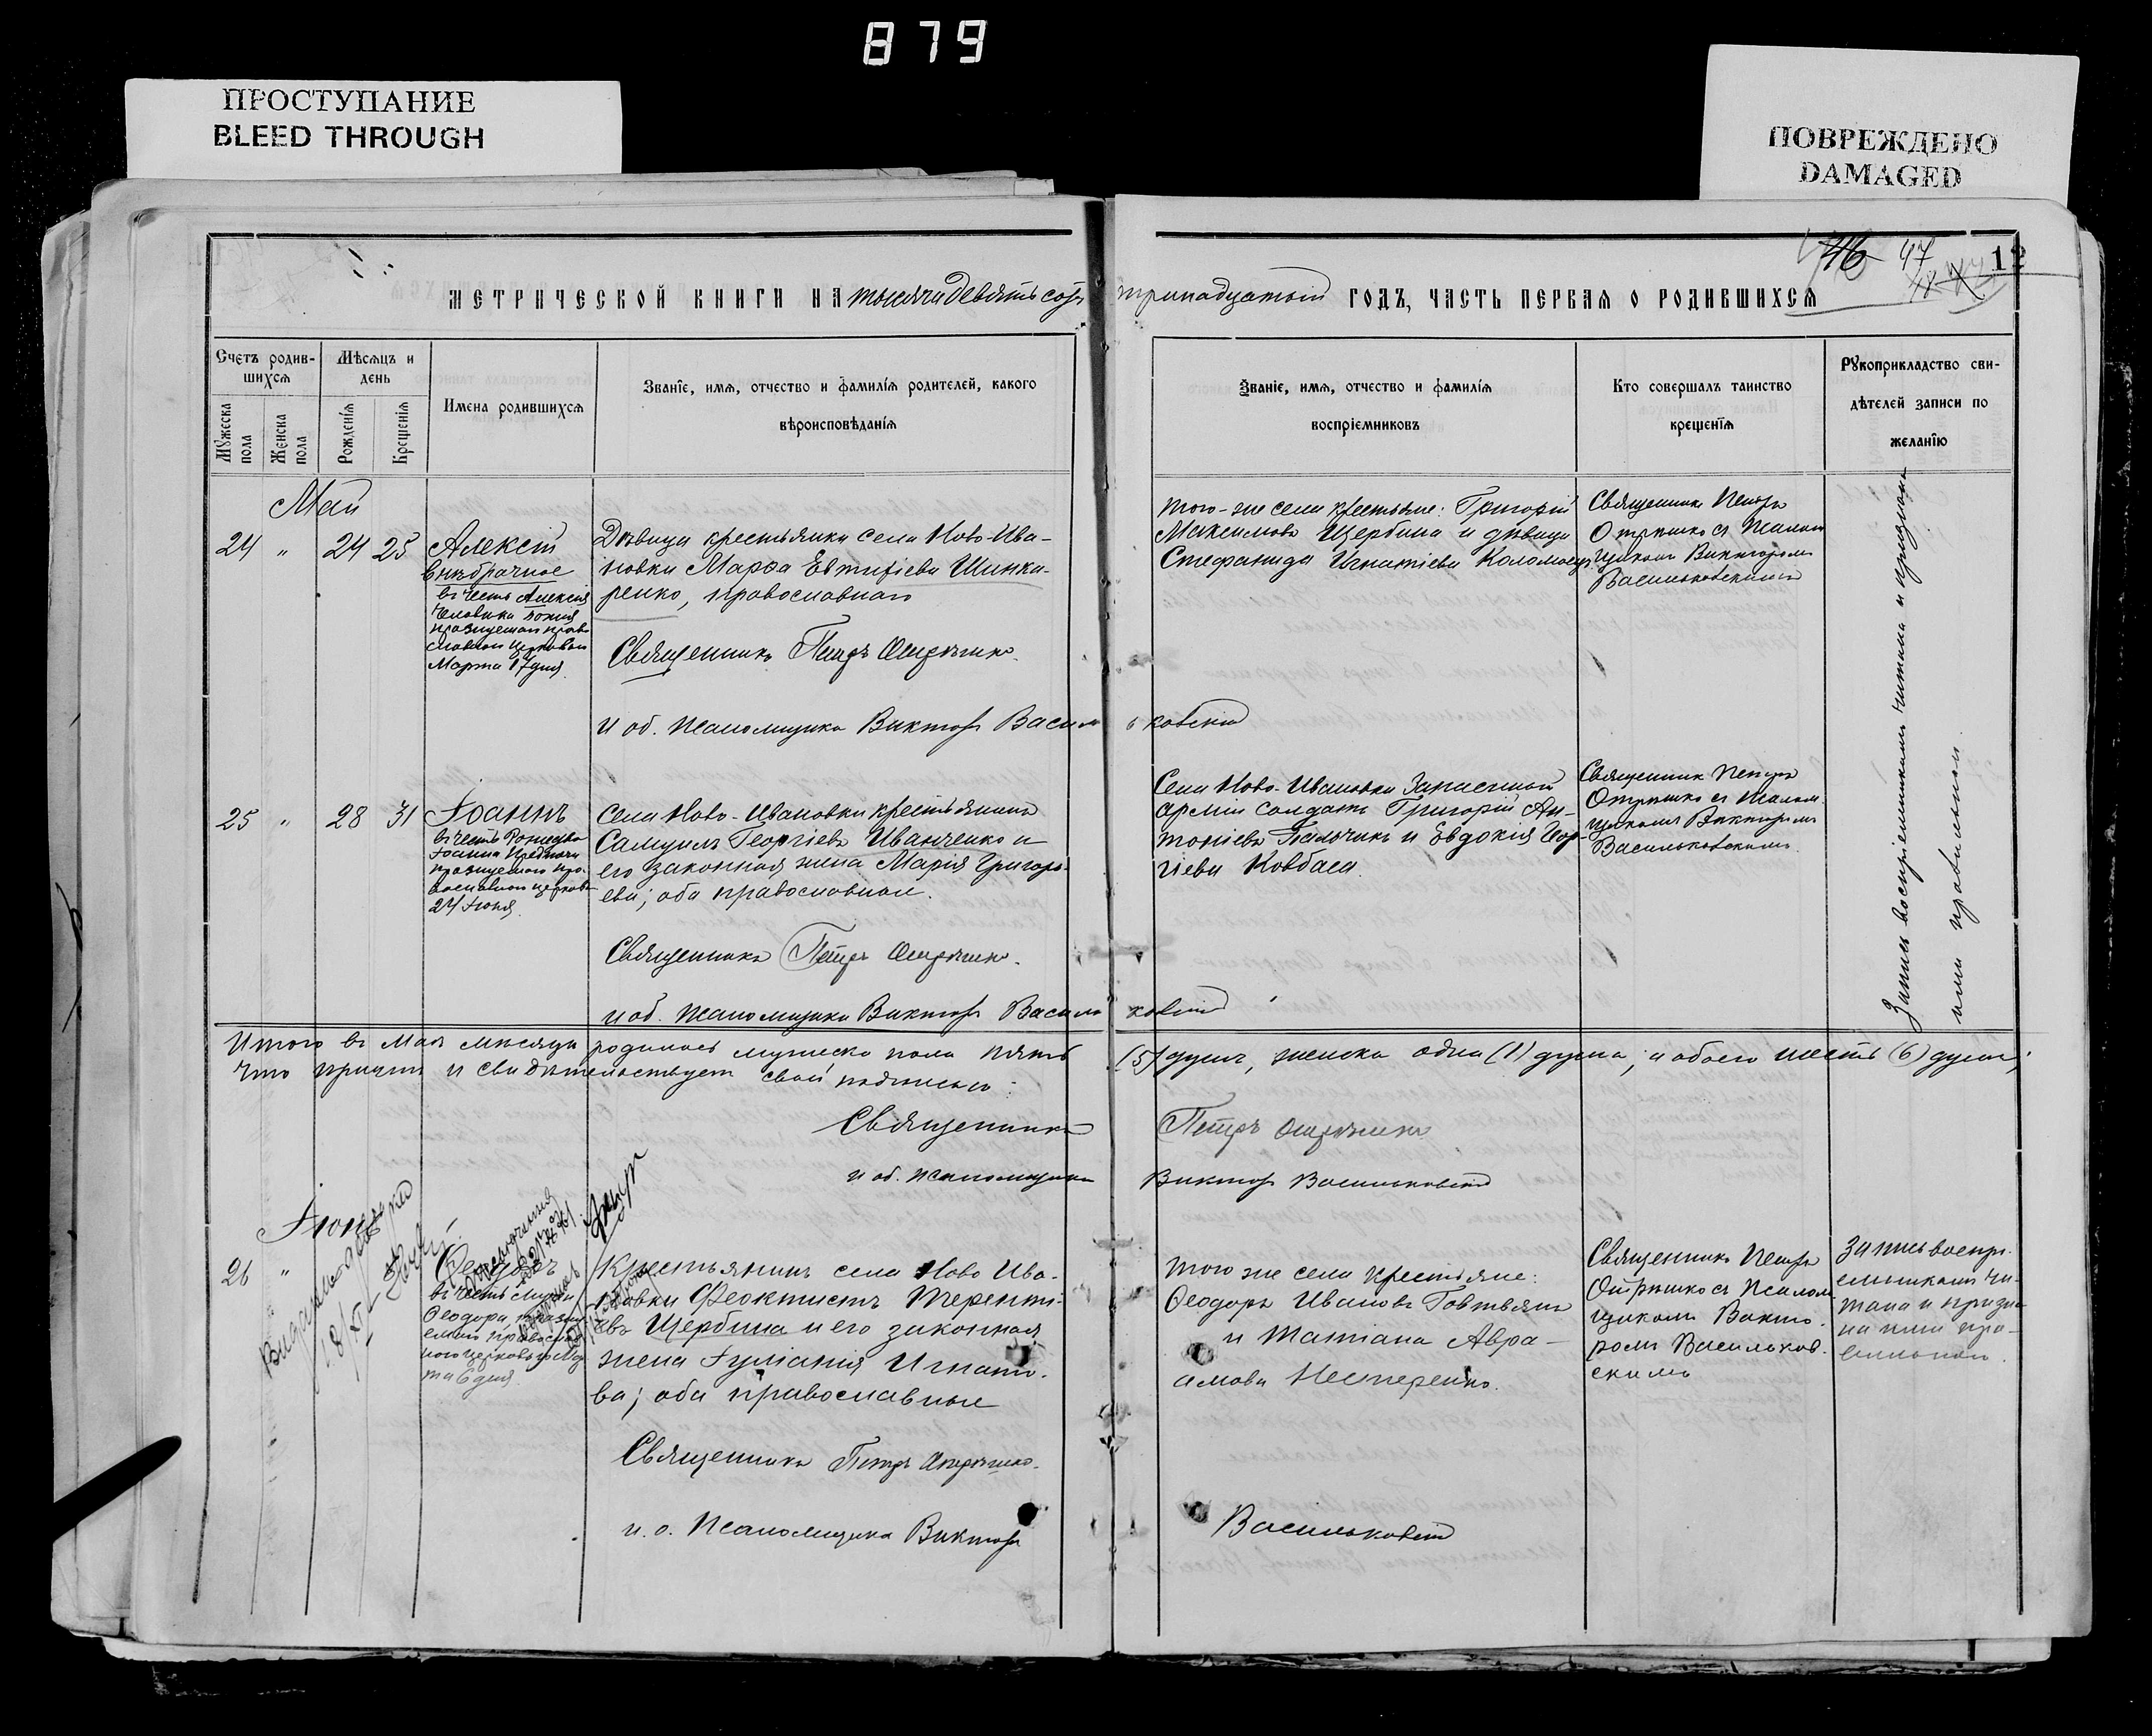 879
ПРОСТУПАНИЕ
BLEED THROUGH
ПОВРЕЖДЕНО
DAMAGED
46 47
12
МЕТРИЧЕСКОЙ КНИГИ НА тысяча девятьсотъ тринадцатый ГОДЪ, ЧАСТЬ ПЕРВАЯ О РОДИВШИХСЯ
Счетъ родив-
шихся
Мѣсяцъ и
день
Мужеска
пола
Женска
пола
Рожденія
Крещенія
Имена родившихся
Званіе, имя, отчество и фамилія родителей, какого
вѣроисповѣданія
Званіе, имя, отчество и фамилія
воспріемниковъ
Кто совершалъ таинство
крещенія
Рукоприкладство сви-
дѣтелей записи по
желанію
Май
24 " 24 25
Алексій
внѣбрачное
въ честь Алексія
человѣка Божія
празднуемаго прав
славной церковью
Марта 17 дня.
Дѣвица крестьянка села Ново-Ива-
новки Марѳа Евтихіева Шинка-
ренко, православнаго
Священникъ Петръ Отрѣшко.
И об. псаломщика Виктор Васильковскій
того-же села крестьяне: Григорій
Максимовъ Щербина и дѣвица
Стефанида Игнатіева Коломоецъ.
Священникъ Петръ
Отрѣшко съ псалом
щикомъ Викторомъ
Васильковскимъ
25 " 28 31
Іоаннъ
въ честь Рождества
Іоанна Предтечи
празднуемаго пра-
вославной церковью
24 Іюня.
Села Ново-Ивановки крестьянинъ
Самуилъ Георгіевъ Иванченко и
его законная жена Марія Григорь-
ева; оба православные.
Священникъ Петръ Отрѣшко.
И об. псаломщика Викторъ Васильковскій
Села Ново-Ивановки Запасный
арміи солдатъ Григорій Ан-
тоніевъ Пальчикъ и Евдокія Геор-
гіева Ковбаса.
Священник Петръ
Отрѣшко съ псалом-
щикомъ Викторомъ
Васильковскимъ.
Запись воспріемникамъ читана и признана
ими правильной.
Итого въ Маѣ мѣсяцѣ родилось мужеска пола пять (5) душъ, женска одна (1) душа, и обоего шесть (6) душъ;
что причтъ и свидѣтельствуетъ свой подписью:
Священникъ Петръ Отрѣшко
И об. псаломщика Викторъ Васильковскій
Іюнь
26 "
Ѳеодоръ
въ честь
Ѳеодора, праздну
емаго православ
ного церковью Ма
та 6 дня.
Крестьянинъ села Ново Ива-
новки Феоктистъ Терентi-
евъ Щербина и его законная
жена Іуліанія Игнато-
ва; оба православные
Священникъ Петръ Отрѣшко.
и. о. Псаломщика Викторъ Васильковскій
того же села крестьяне:
Ѳеодоръ Ивановъ Говтвянъ
и Татіана Авра-
амова Нестеренко.
Священникъ Петръ
Отрѣшко съ Псалом
щикомъ Викто-
ромъ Васильков-
скимъ
Запись воспрі-
емникамъ чи-
тана и призна
на ими пра-
вильной.